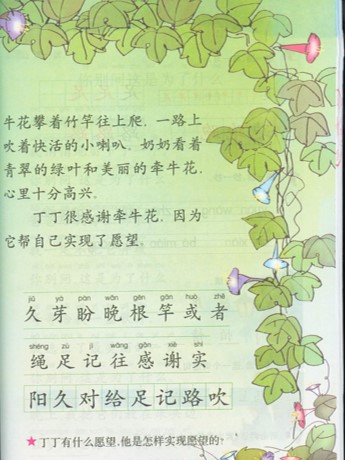 牛花攀着竹竿往上爬,一路上
吹着快活的小喇叭。奶奶看着
青翠的绿叶和美丽的牵牛花,
心里十分高兴。
丁丁很感谢牵牛花,因为
它帮自己实现了愿望。
jiǔ yá pàn wǎn gēn gān huò zhě
久 芽 盼 晚 根 竿 或 者
shéng zú jì wǎng gǎn xiè shí
绳 足 记 往 感 谢 实
阳 久 对 给 足 记 路 吹
★丁丁有什么愿望,他是怎样实现愿望的?